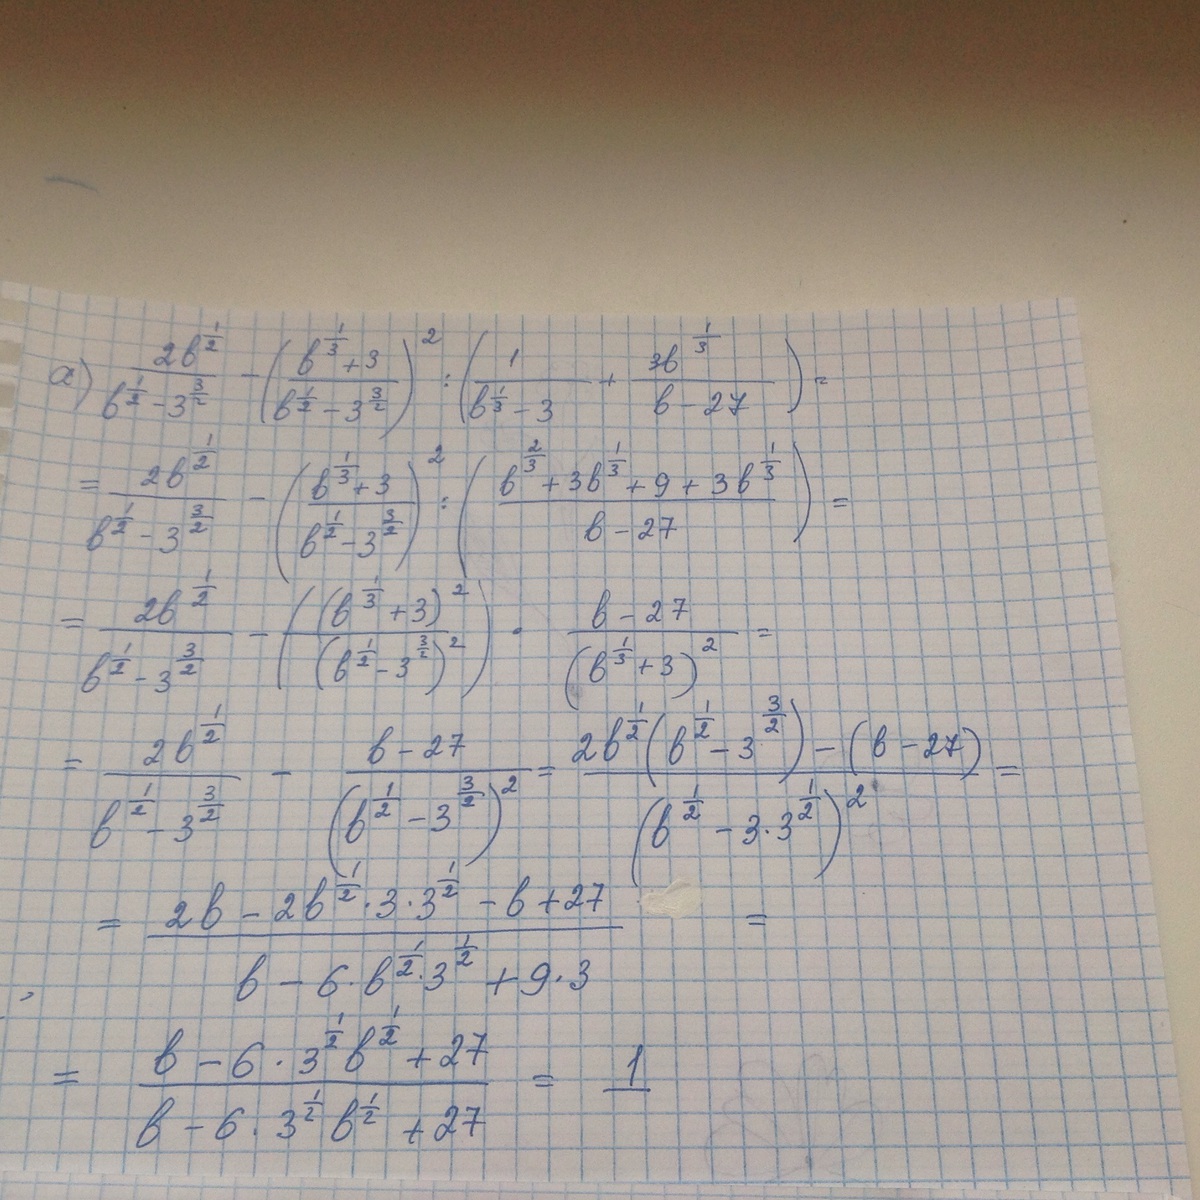 а) 2b^(1/2)/(b^(1/2) − 3^(3/2)) − ((b^(1/3) + 3)/(b^(1/2) − 3^(3/2)))^2 : (1/(b^(1/3) − 3) + 3b^(1/3)/(b − 27)) =
= 2b^(1/2)/(b^(1/2) − 3^(3/2)) − ((b^(1/3) + 3)/(b^(1/2) − 3^(3/2)))^2 : ((b^(2/3) + 3b^(1/3) + 9 + 3b^(1/3))/(b − 27)) =
= 2b^(1/2)/(b^(1/2) − 3^(3/2)) − ((b^(1/3) + 3)^2/(b^(1/2) − 3^(3/2))^2) · (b − 27)/(b^(1/3) + 3)^2 =
= 2b^(1/2)/(b^(1/2) − 3^(3/2)) − (b − 27)/(b^(1/2) − 3^(3/2))^2 = (2b^(1/2)(b^(1/2) − 3^(3/2)) − (b − 27))/(b^(1/2) − 3·3^(1/2))^2 =
= (2b − 2b^(1/2)·3·3^(1/2) − b + 27)/(b − 6·b^(1/2)·3^(1/2) + 9·3) =
= (b − 6·3^(1/2) b^(1/2) + 27)/(b − 6·3^(1/2) b^(1/2) + 27) = 1